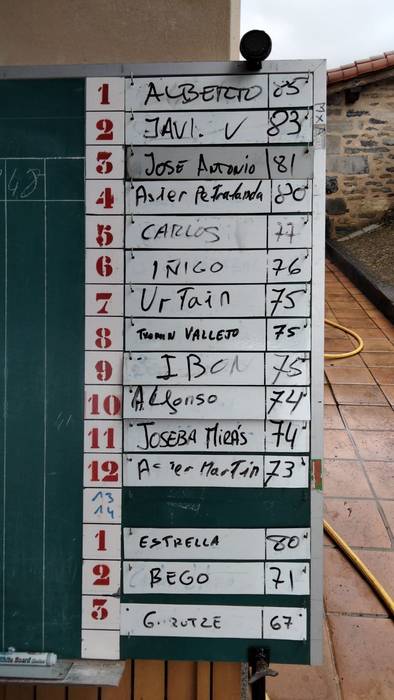 1 ALBERTO 85
2 JAVI. V 83
3 JOSE ANTONIO 81
4 Asier Petralanda 80
5 CARLOS 77
6 IÑIGO 76
7 Urtain 75
8 VALLEJO 75
9 IBON 75
10 ALfonso 74
11 JOSEBA MIRÁS 74
12 Martin 73
13
14
1 ESTRELLA 80
2 BEGO 71
3 G. 67
48
White Board